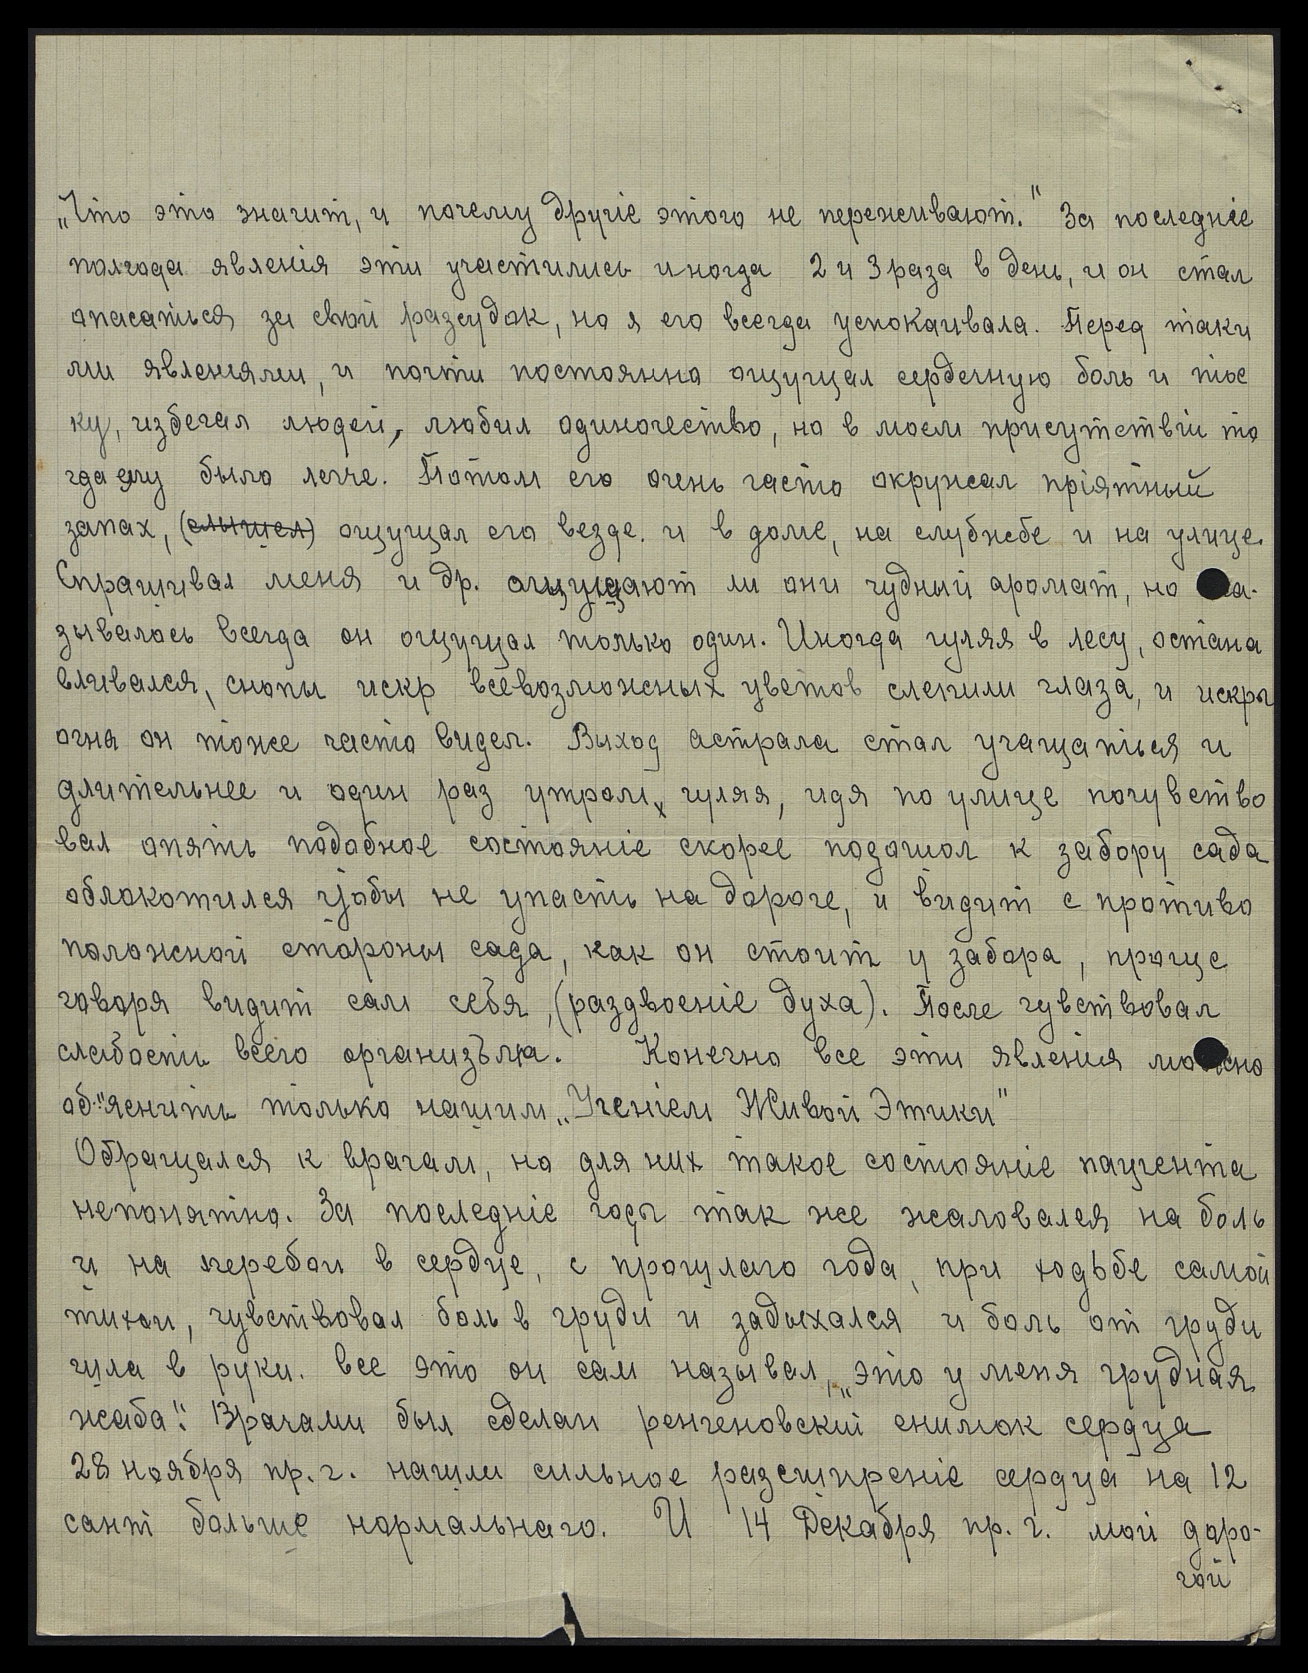 „Что это значит, и почему другіе этого не переживают." За последніе
полгода явленія эти участились иногда 2 и 3 раза в день, и он стал
опасаться за свой разсудок, но я его всегда успокаивала. Перед таки
ми явленіями, и почти постоянно ощущал сердечную боль и тос
ку, избегал людей, любил одиночество, но в моем присутствіи то
гда ему было легче. Потом его очень часто окружал пріятный
запах, (слышел) ощущал его везде. и в доме, на службе и на улице.
Спрашивал меня и др. ощущают ли они чудный аромат, но а-
зывалось всегда он ощущал только один. Иногда гуляя в лесу, остана
вливался, снопы искр всевозможных цветов слепили глаза, и искры
огня он тоже часто видел. Выход астрала стал учащаться и
длительнее и один раз утром, гуляя, идя по улице почувство
вал опять подобное состояніе скорее подошол к забору сада
облокотился чтобы не упасть на дороге, и видит с противо
положной стороны сада, как он стоит у забора, проще
говоря видит сам себя, (раздвоеніе духа). После чувствовал
слабость всего организъма. Конечно все эти явленія можно
об"яснить только нашим „Ученіем Живой Этики"
Обращался к врачам, но для них такое состояніе паціента
непонятно. За последніе годы так же жаловался на боль
и на перебои в сердце, с прошлаго года, при ходьбе самой
тихой, чувствовал боль в груди и задыхался и боль от груди
шла в руки. все это он сам называл, „это у меня грудная
жаба". Врачами был сделан ренгеновскій снимок сердца
28 ноября пр. г. нашли сильное разсширеніе сердца на 12
сант больше нормальнаго. И 14 Декабря пр. г. мой доро-
гой